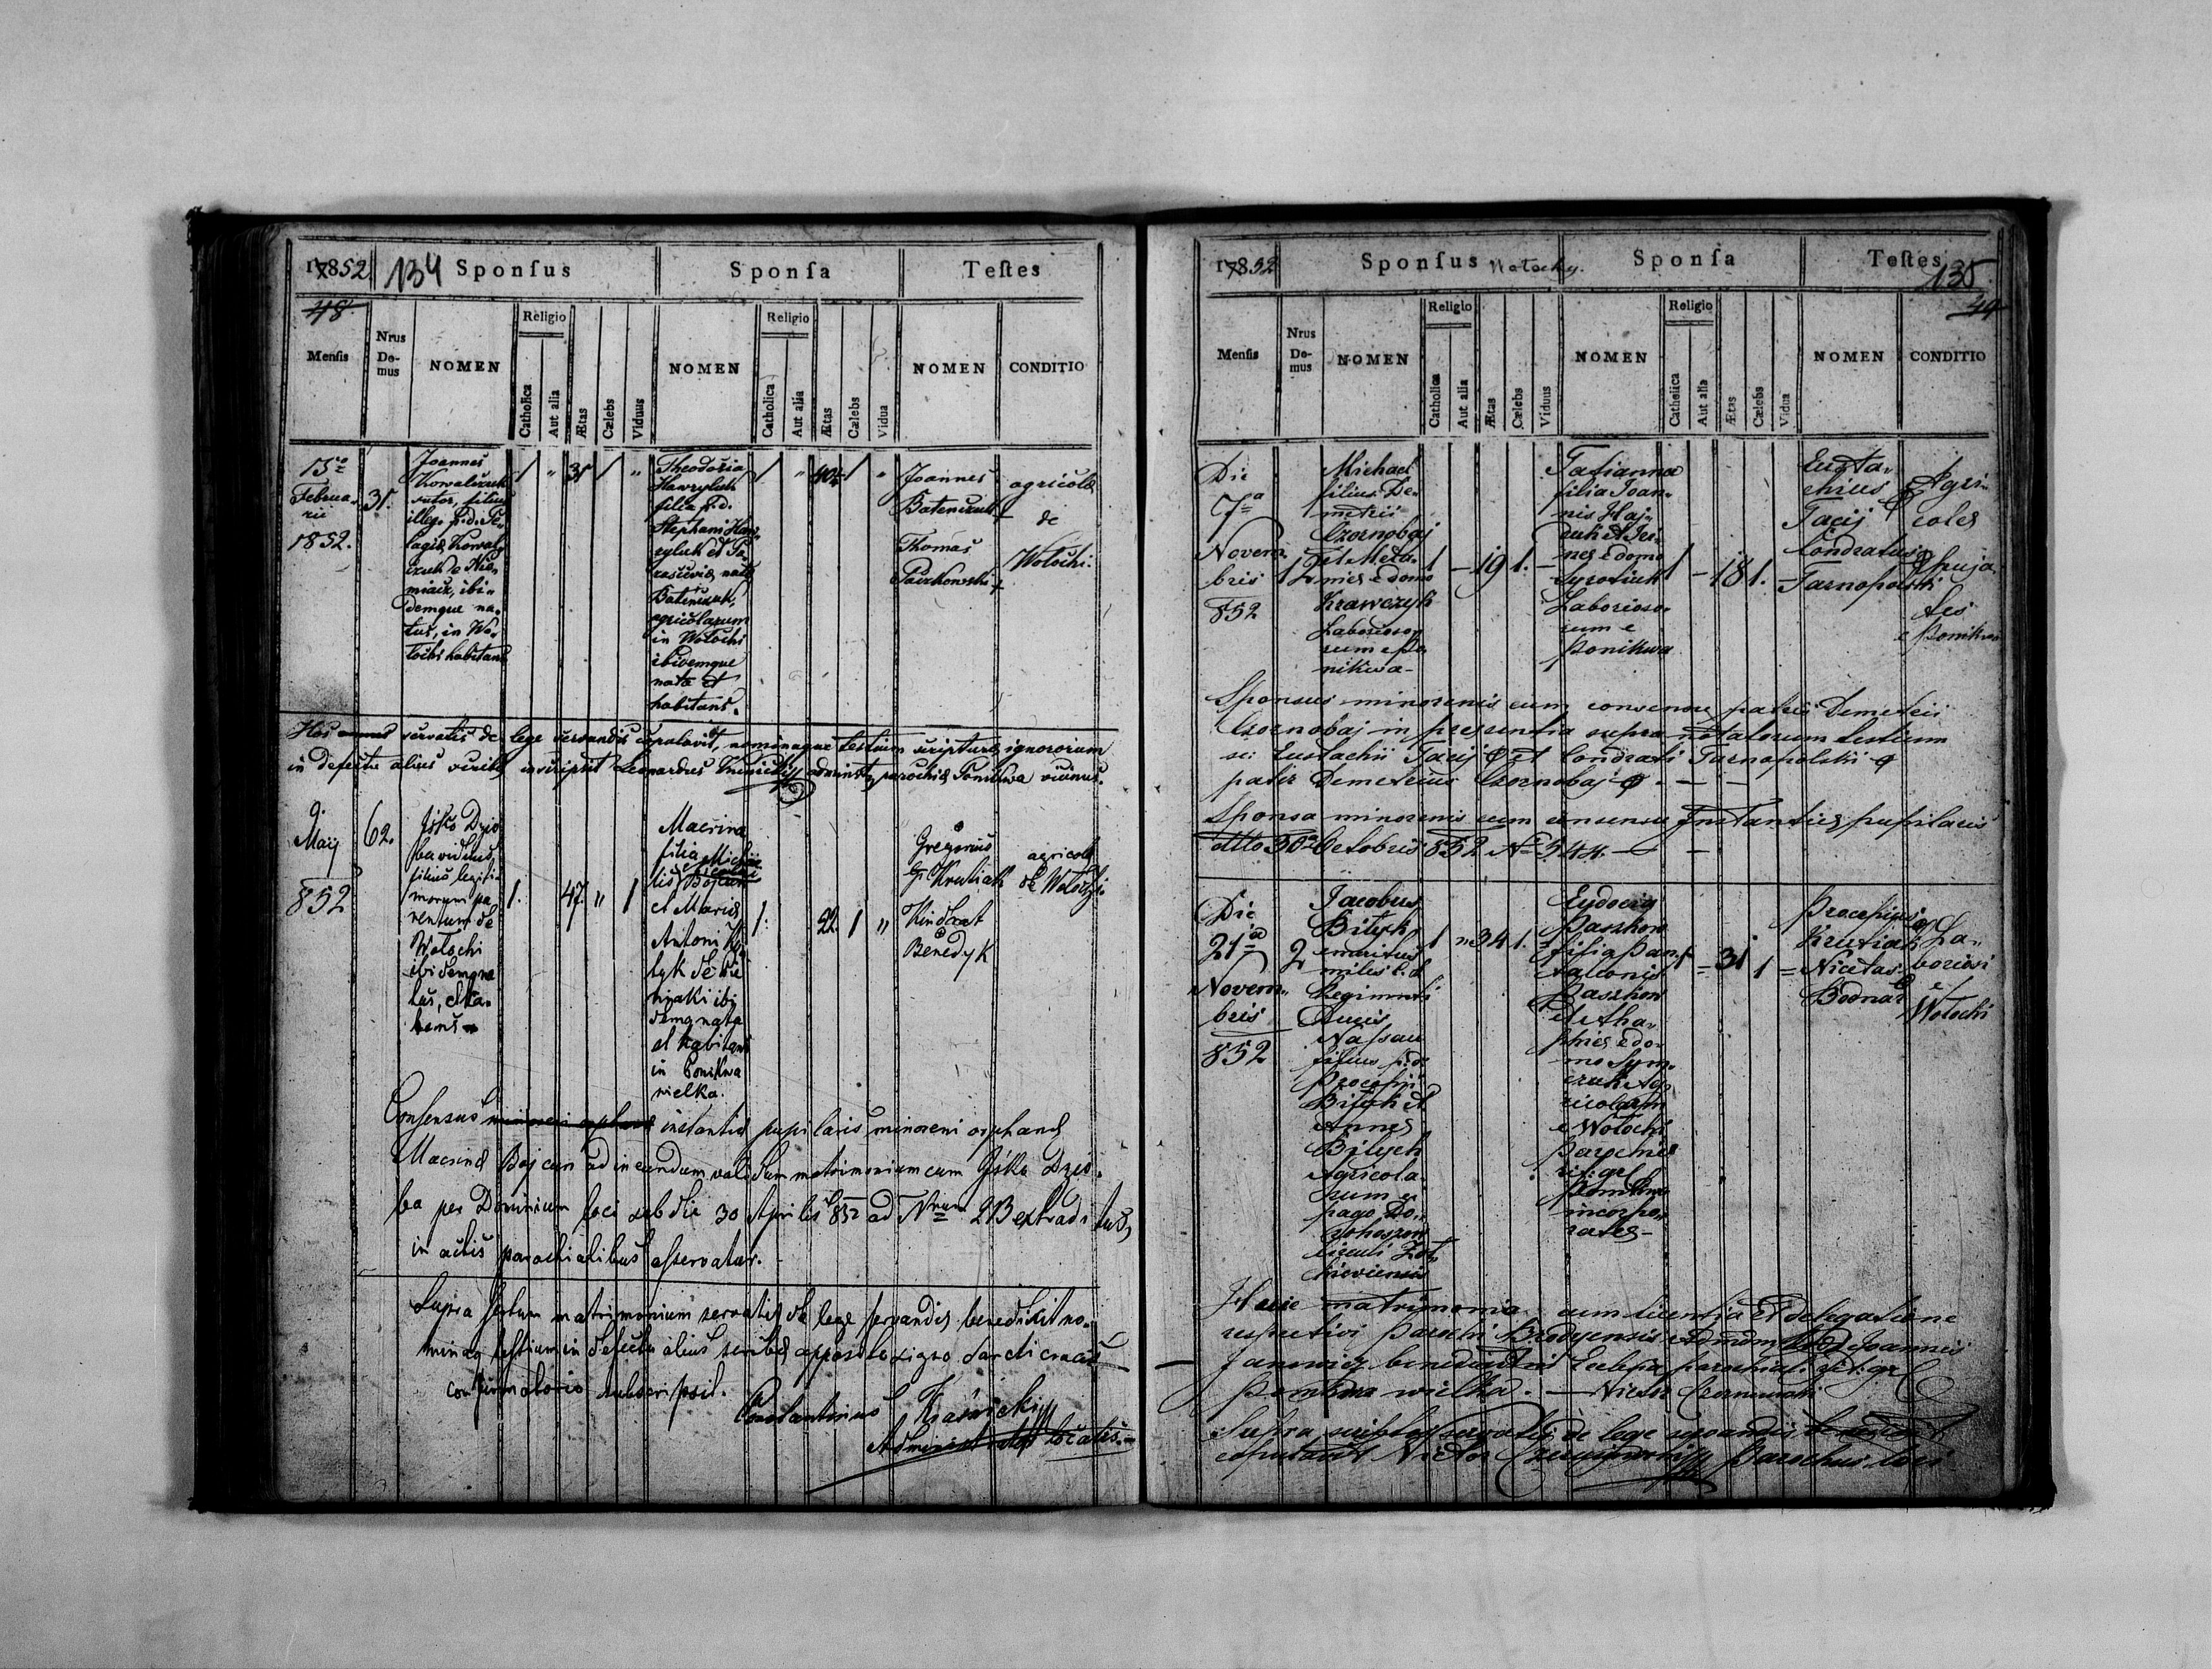 17852 134 Sponsus Sponsa Testes
48
Mensis Nrus Domus NOMEN Religio Catholica Aut alia Ætas Cælebs Viduus NOMEN Religio Catholica Aut alia Ætas Cælebs Vidua NOMEN CONDITIO
15ª
Februa-
rii
1852.
31.
Joannes
Kowalczuk
sutor, filius
illeg. p.d. Pe-
lagiæ Kowal-
czuk e Nie-
miacz, ibi-
demque na-
tus, in Wo-
lochi habitans
1 " 31 1 "
Theodosia
Hawryluk
filia p.d.
Stephani Haw-
ryluk et Pa-
rasceviæ natæ
Bateńczuk,
agricolarum
in Wolochi
ibidemque
nata et
habitans.
1 " 40½ 1 "
Joannes
Bateńczuk +
Thomas
Paczkowski +
agricolæ
de
Wolochi.
Hos servatis de lege servandis copulavit, nominaque testium scripturæ ignarorum
in defectu alius scribæ inscripsit Leonardus administr. parochiæ Ponikwa vicinus.
9.
Maij
852
62.
Jśko Dzio
ba viduus
filius legiti-
morum pa
rentum de
Wolochi
ibidemque na
tus, et ha-
bens
1. 47 " 1
Macrina
filia Michae
lis Bojcun
et Mariæ
Antoni
tyk de Bie
niaki ibi
demq nata
et habitans
in Ponikwa
wielka.
1. 22. 1 "
Gregorius
Krutiak
Kindrat
Benedyk
agricolæ
de Wolochi
Consensus instantiæ pupilaris minoreni orphanæ
Macrinæ Bojcun ad ineundum validum matrimonium cum Jśko Dzio-
ba per Dominium loci sub die 30 Aprilis 852 ad Nrum 213 extraditus,
in actis parochialibus asservatur.
Supra sertum matrimonium servatis de lege servandis benedixit no-
minaq testium in defectu alius scribæ apposito signo sancti crucis
confirmatorio subscripsit.
Constantinus Kraśnicki
Administrator localis.
17852 Sponsus Wolochy. Sponsa Testes 135
49
Mensis Nrus Domus NOMEN Religio Catholica Aut alia Ætas Cælebs Viduus NOMEN Religio Catholica Aut alia Ætas Cælebs Vidua NOMEN CONDITIO
Die
7ª
Novem-
bris
852
Michael
filius De-
metrii
Czornobaj
et Mela-
niæ e domo
Krawczyk
Laborioso-
rum e Po-
nikwa
1 - 19 1. -
Tatianna
filia Joan-
nis Haj-
ruk et Iri-
nes e domo
Syrotiuk
Laborioso-
rum e
Ponikwa
1 - 18 1. -
Eusta-
chius
Jacij
Condratus
Tarnopolski
Agri-
colæ
huja-
tes
e Ponikwa
Sponsus minorenis cum consensu patris Demetrii
Czornobaj in præsentia supra notatorum testium
sc: Eustachii Jacij et Condrati Tarnopolski
pater Demetrius Czornobaj
Sponsa minorenis cum consensu Instantiæ pupilaris
ddto 30 Octobris 852 Nº 344.
Die
21ª
Novem-
bris
852
2
Jacobus
Bilych
emeritus
miles c. d.
Regimenti
Ducis
Nassau
filius p.d.
Procopii
Bilych et
Annes
Bilych
Agricola-
rum e
pago Do-
rohoszow
circuli Żoł-
kieviensis
1 " 34 1. =
Eudocia
Paszkow
filia Pan-
taleonis
Paszkow
et Aha-
phiæ e do-
mo Sym-
czuk Ag-
ricolarum
e Wolochi
Parochiæ
rit: gr
Ponikwa
incorpo-
rates -
1 = 31 1 =
Procopius
Krutiak
Nicetas
Bodnar
La-
boriosi
e
Wolochi
Hæcce matrimonia cum licentia et delegatione
respectivi Parochi Brodyensis Joannis
Janowicz benedicta in Ecclesia parochiali rit: gr
Ponikwa wielka. - Victor
Supra scriptos servatis de lege servandis
copulavit Victor Parochus loci